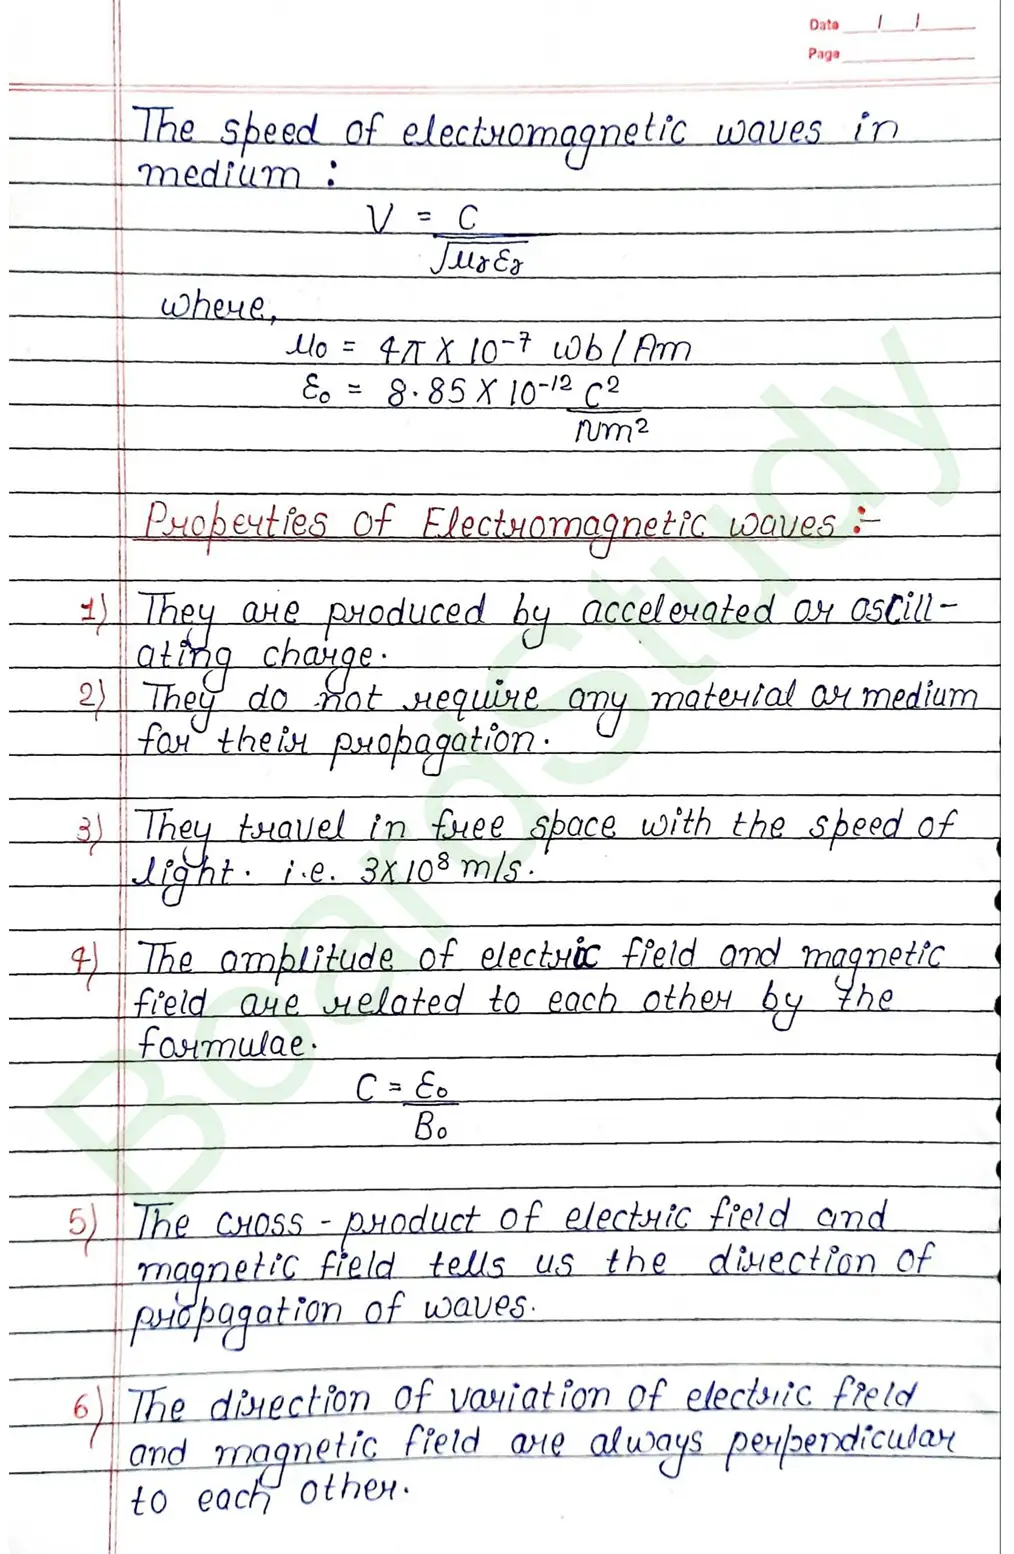 Date __/__/__
Page
The speed of electromagnetic waves in
medium :
V = C
√μrεr
where,
μ0 = 4π X 10⁻⁷ wb/Am
ε0 = 8.85 X 10⁻¹² C²
Nm²
Properties of Electromagnetic waves :-
1) They are produced by accelerated or oscill-
ating charge.
2) They do not require any material or medium
for their propagation.
3) They travel in free space with the speed of
light. i.e. 3X10⁸ m/s.
4) The amplitude of electric field and magnetic
field are related to each other by the
formulae.
C = ε0
B0
5) The cross-product of electric field and
magnetic field tells us the direction of
propagation of waves.
6) The direction of variation of electric field
and magnetic field are always perpendicular
to each other.
BoardStudy